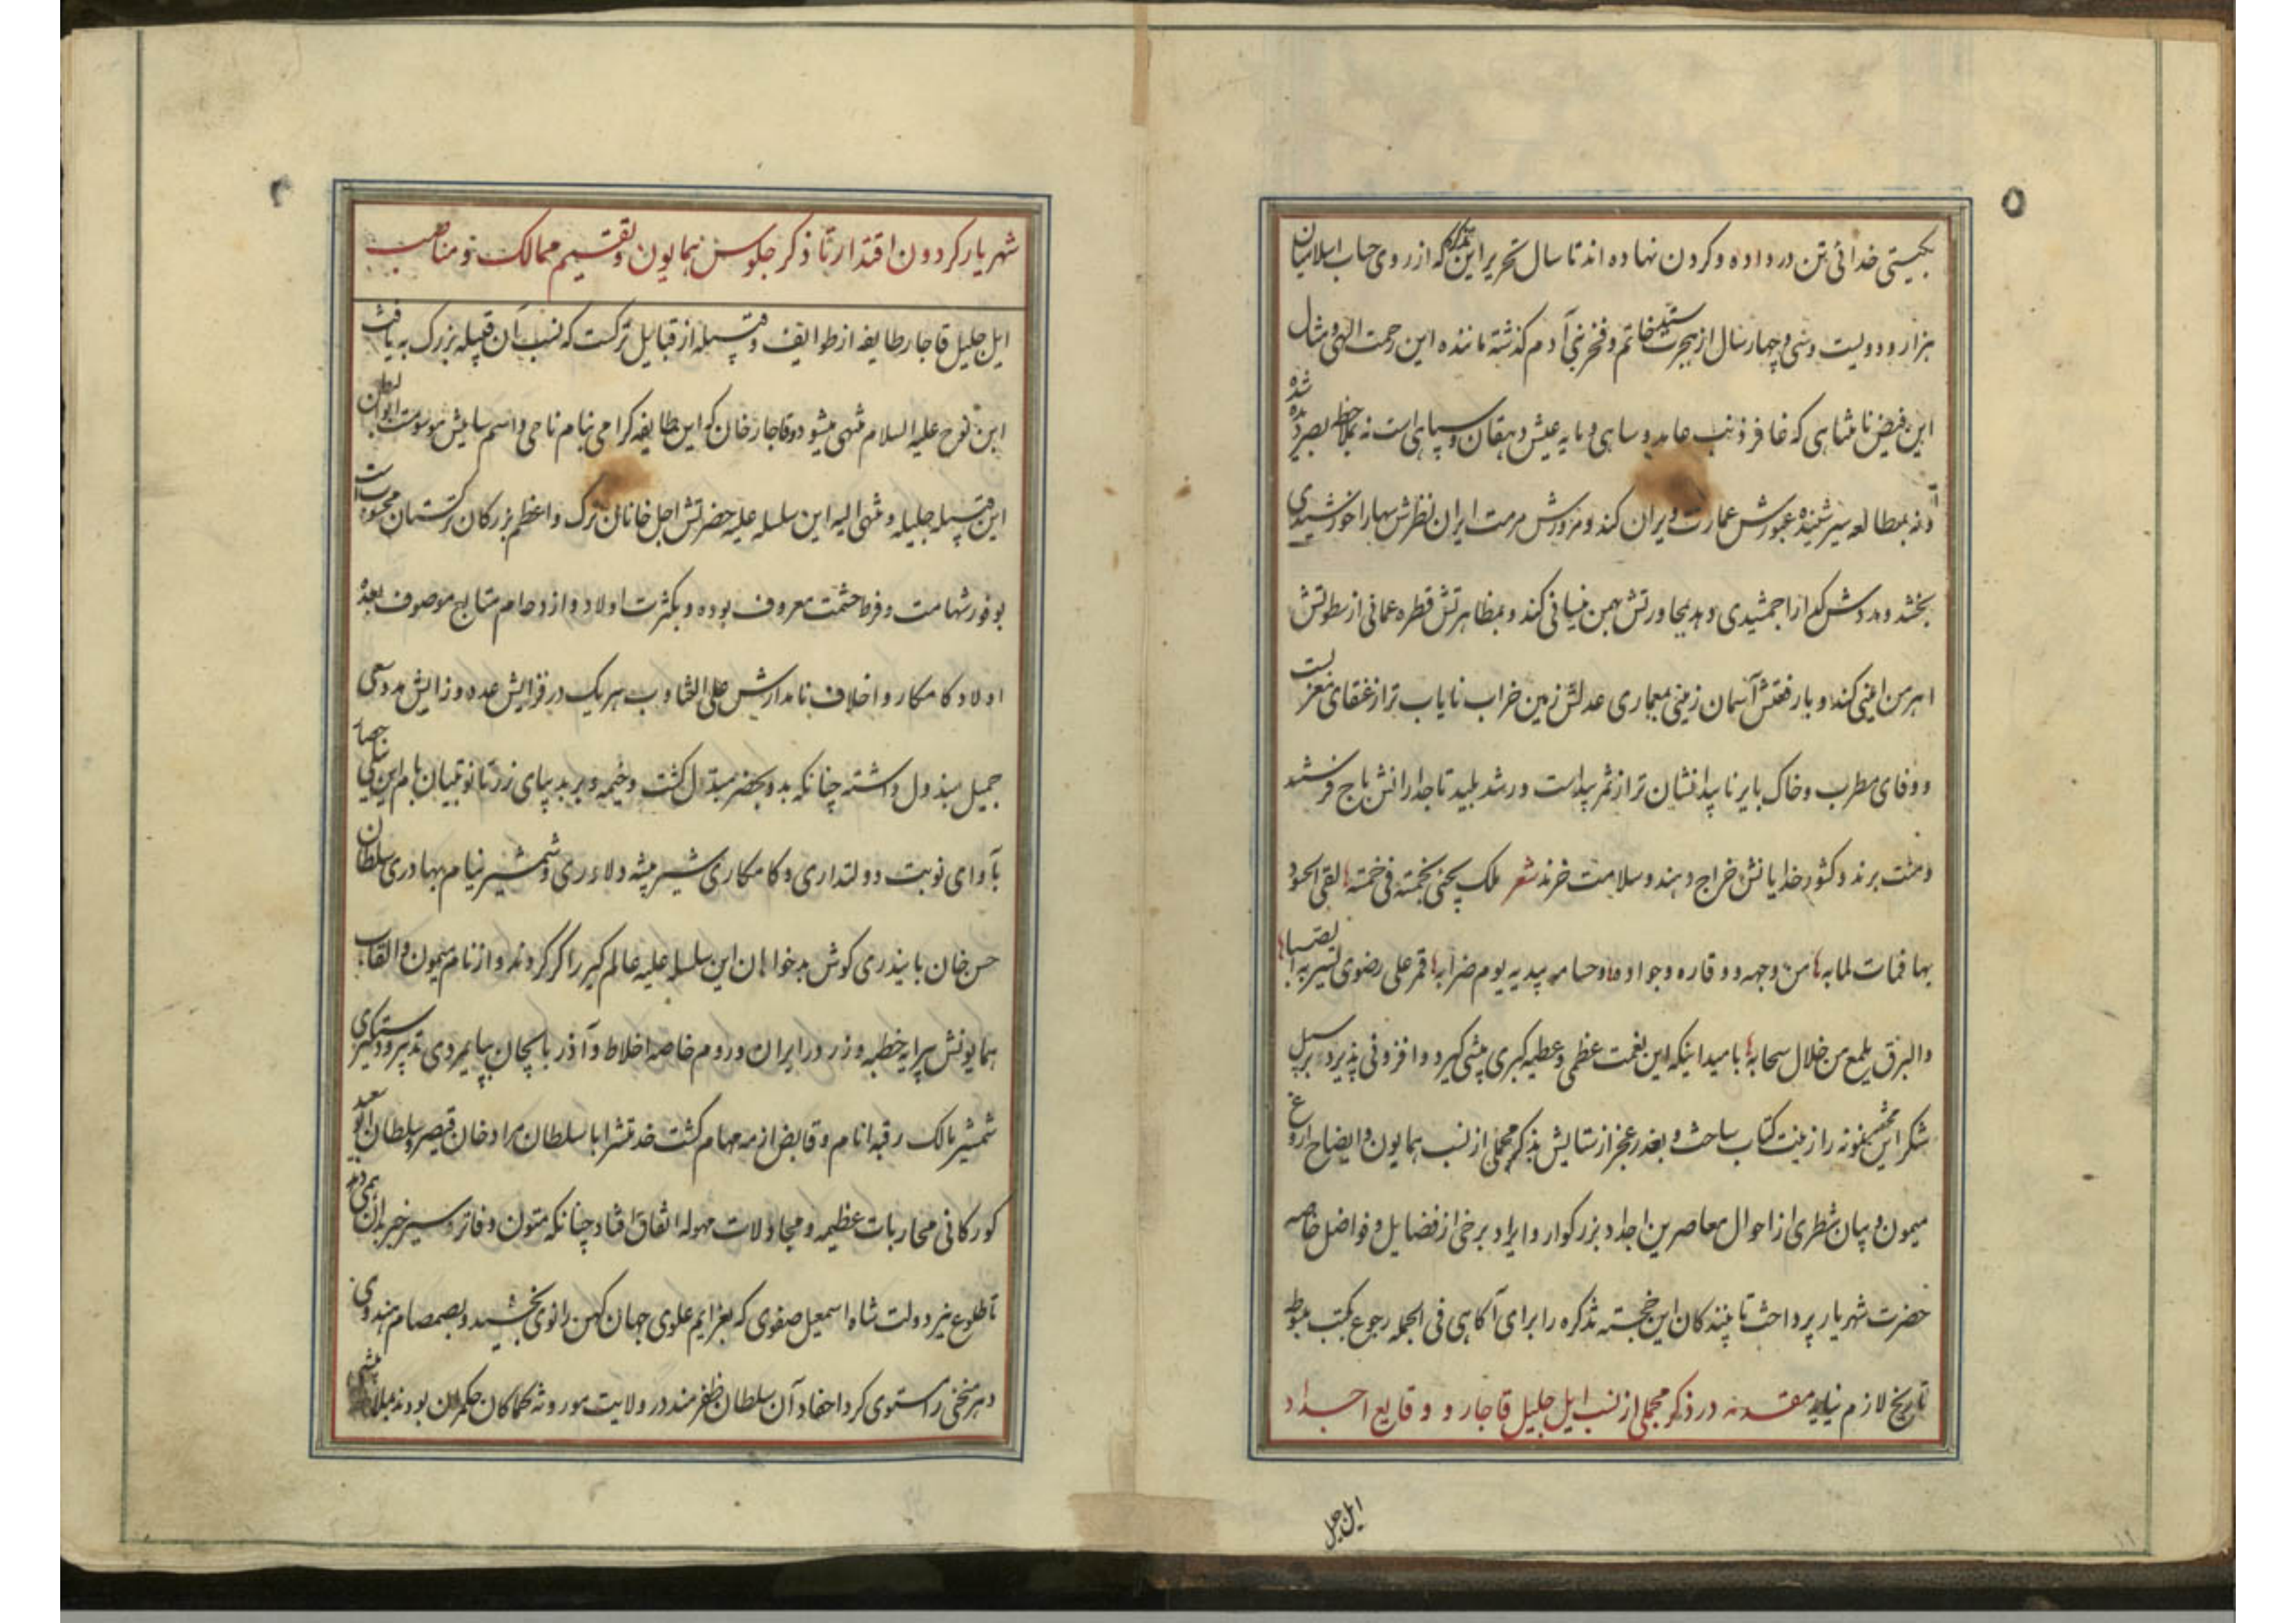 ۵
بگیتی خدائی تن در داده و گردن نهاده اند تا سال تحریر این که از روی حساب اسلامیان
هزار و دویست و سی و چهار سال از هجرت خاتم و فخر بنی آدم گذشته ماننده این رحمت الهی و مثال
این فیض نامتناهی که غافر ذنب عابد و ساهی و مایه عیش دهقان و سپاهی است نه بملاحظه بصر دیده شده
و نه بمطالعه سیر شنیده عبورش عمارت ویران کند و مرورش مرمت ایران نظرش سها را خورشیدی
بخشد و مددش گدا را جمشیدی دهد بمجاورتش بهمن نیسانی کند و بمظاهرتش قطره عمانی از سطوتش
اهرمن امینی کند و با رفعتش آسمان زمینی بمعماری عدلش زمین خراب نایاب تر از عنقای مغربست
و وفای مطرب و خاک بایر ناپیدا نشان تر از ثمر بیداست و رشد بلید تاجدارانش باج فرستند
و منت برند و کشور خدایانش خراج دهند و سلامت خرند شعر ملک بخمسة فی خمسة لقی الحسود
بها فمات لمابه من وجهه و وقاره وجواده وحسامه بیدیه یوم ضرابه قمر علی رضوی
والبرق یلمع من خلال سحابه بامید اینکه این نعمت عظمی و عطیه کبری بیشی گیرد و افزونی پذیرد بر سبیل
شکر این نمونه را زینت کتاب ساخت و بعد عجز از ستایش بذکر مجملی از نسب همایون و ایضاح اروغ
میمون و بیان شطری از احوال معاصرین اجداد بزرگوار و ایراد برخی از فضایل و فواضل خاصه
حضرت شهریار پرداخت تا بینندگان این خجسته تذکره را برای آگاهی فی الجمله رجوع بکتب مبسوطه
تاریخ لازم نیاید مقدمه در ذکر مجملی از نسب ایل جلیل قاجار و وقایع اجداد
ایل جلیل
شهریار گردون اقتدار تا ذکر جلوس همایون و تقسیم ممالک و مناصب
ایل جلیل قاجار طایفه از طوایف و قبیله از قبایل ترکست که نسب آن قبیله بزرگ به یافث
ابن نوح علیه السلام منتهی میشود و قاجار خان که این طایفه گرامی بنام نامی و اسم سامیش موسومست
این قبیله جلیله و منتهی الیه این سلسله علیه حضرتش اجل خانان ترک و اعظم بزرگان ترکستان محسوبست
بوفور شهامت و فرط حشمت معروف بوده و بکثرت اولاد و ازدحام متابع موصوف بعده
اولاد کامکار و اخلاف نامدارش علی التناوب هریک در فزایش عده و زایش مده سعی
جمیل مبذول داشته چنانکه بدو بحضر مبتدل گشت و خیمه و بر بد بپای زرتا نوبتیان بام این نیلی حصار
بآوای نوبت دولتداری و کامکاری شیر بیشه دلاوری و شمشیر نیام بهادری سلطان
حسن خان بایندری گوش بدخواهان این سلسله علیه عالم گیر را کر کردند و از نام میمون و القاب
همایونش پیرایه خطبه و زر در ایران و روم خاصه اخلاط و آذربایجان بپایمردی تدبیر و دستیاری
شمشیر مالک رقبه انام و قابض ازمه مهام گشت خدمتش را با سلطان مراد خان قیصر و سلطان ابو سعید
گورکانی محاربات عظیمه و مجادلات مهوله اتفاق افتاد چنانکه متون دفاتر و سیر خبر بدان همی دهد
تا طلوع نیر دولت شاه اسمعیل صفوی که بعزایم علوی جهان کهن را نوی بخشید و بصمصام هندوی
دهر منحنی را مستوی کرد احفاد آن سلطان ظفرمند در ولایت موروثه کماکان حکمران بودند